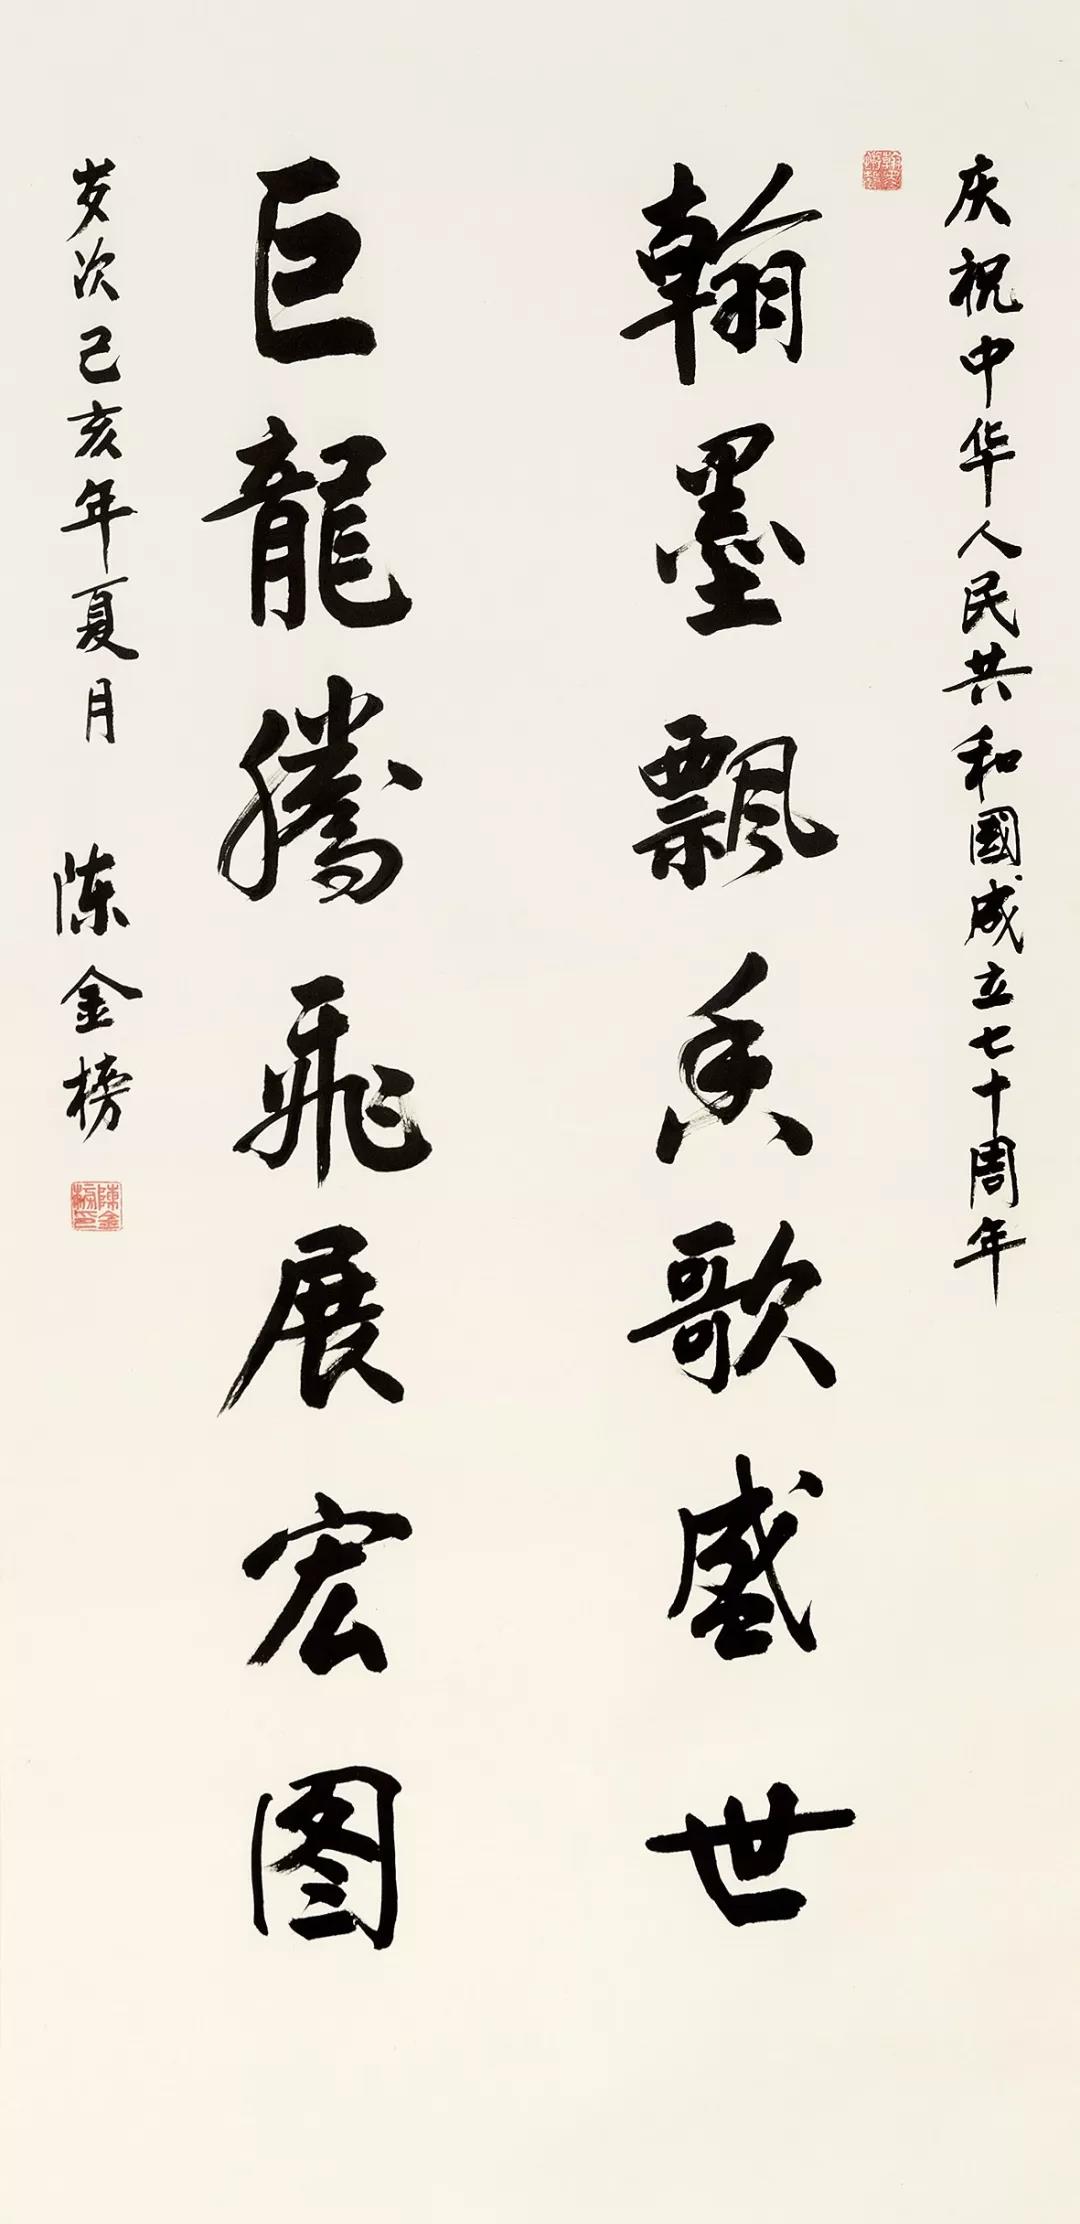 庆祝中华人民共和國成立七十周年
翰墨飘香歌盛世
巨龍腾飛展宏图
岁次己亥年夏月 陈金榜
陳金榜印